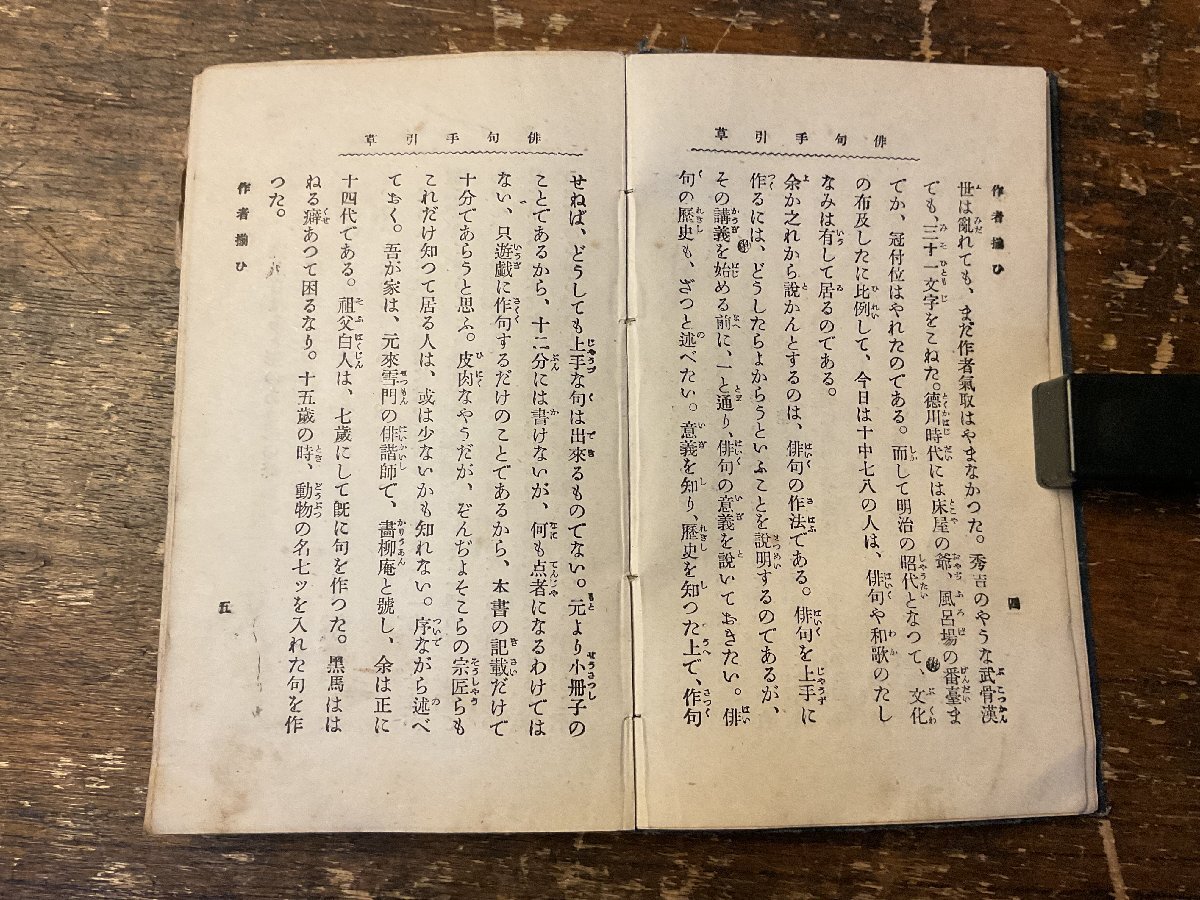 俳句手引草
作者揃ひ
世は亂れても、まだ作者氣取はやまなかつた。秀吉のやうな武骨漢
でも、三十一文字をこねた。德川時代には床屋の爺、風呂場の番臺ま
でか、冠付位はやれたのである。而して明治の昭代となつて、文化
の布及したに比例して、今日は十中七八の人は、俳句や和歌のたし
なみは有して居るのである。
余か之れから說かんとするのは、俳句の作法である。俳句を上手に
作るには、どうしたらよからうといふことを說明するのであるが、
その講義を始める前に、一と通り、俳句の意義を說いておきたい。俳
句の歷史も、ざつと述べたい。意義を知り、歷史を知つた上で、作句
四
俳句手引草
せねば、どうしても上手な句は出來るものでない。元より小冊子の
ことであるから、十二分には書けないが、何も点者になるわけでは
ない、只遊戲に作句するだけのことであるから、本書の記載だけで
十分であらうと思ふ。皮肉なやうだが、ぞんぢよそこらの宗匠らも
これだけ知つて居る人は、或は少ないかも知れない。序ながら述べ
ておく。吾が家は、元來雪門の俳諧師で、畵柳庵と號し、余は正に
十四代である。祖父白人は、七歲にして旣に句を作つた。黑馬はは
ねる癖あつて困るなり。十五歲の時、動物の名七ッを入れた句を作
つた。
作者揃ひ
五